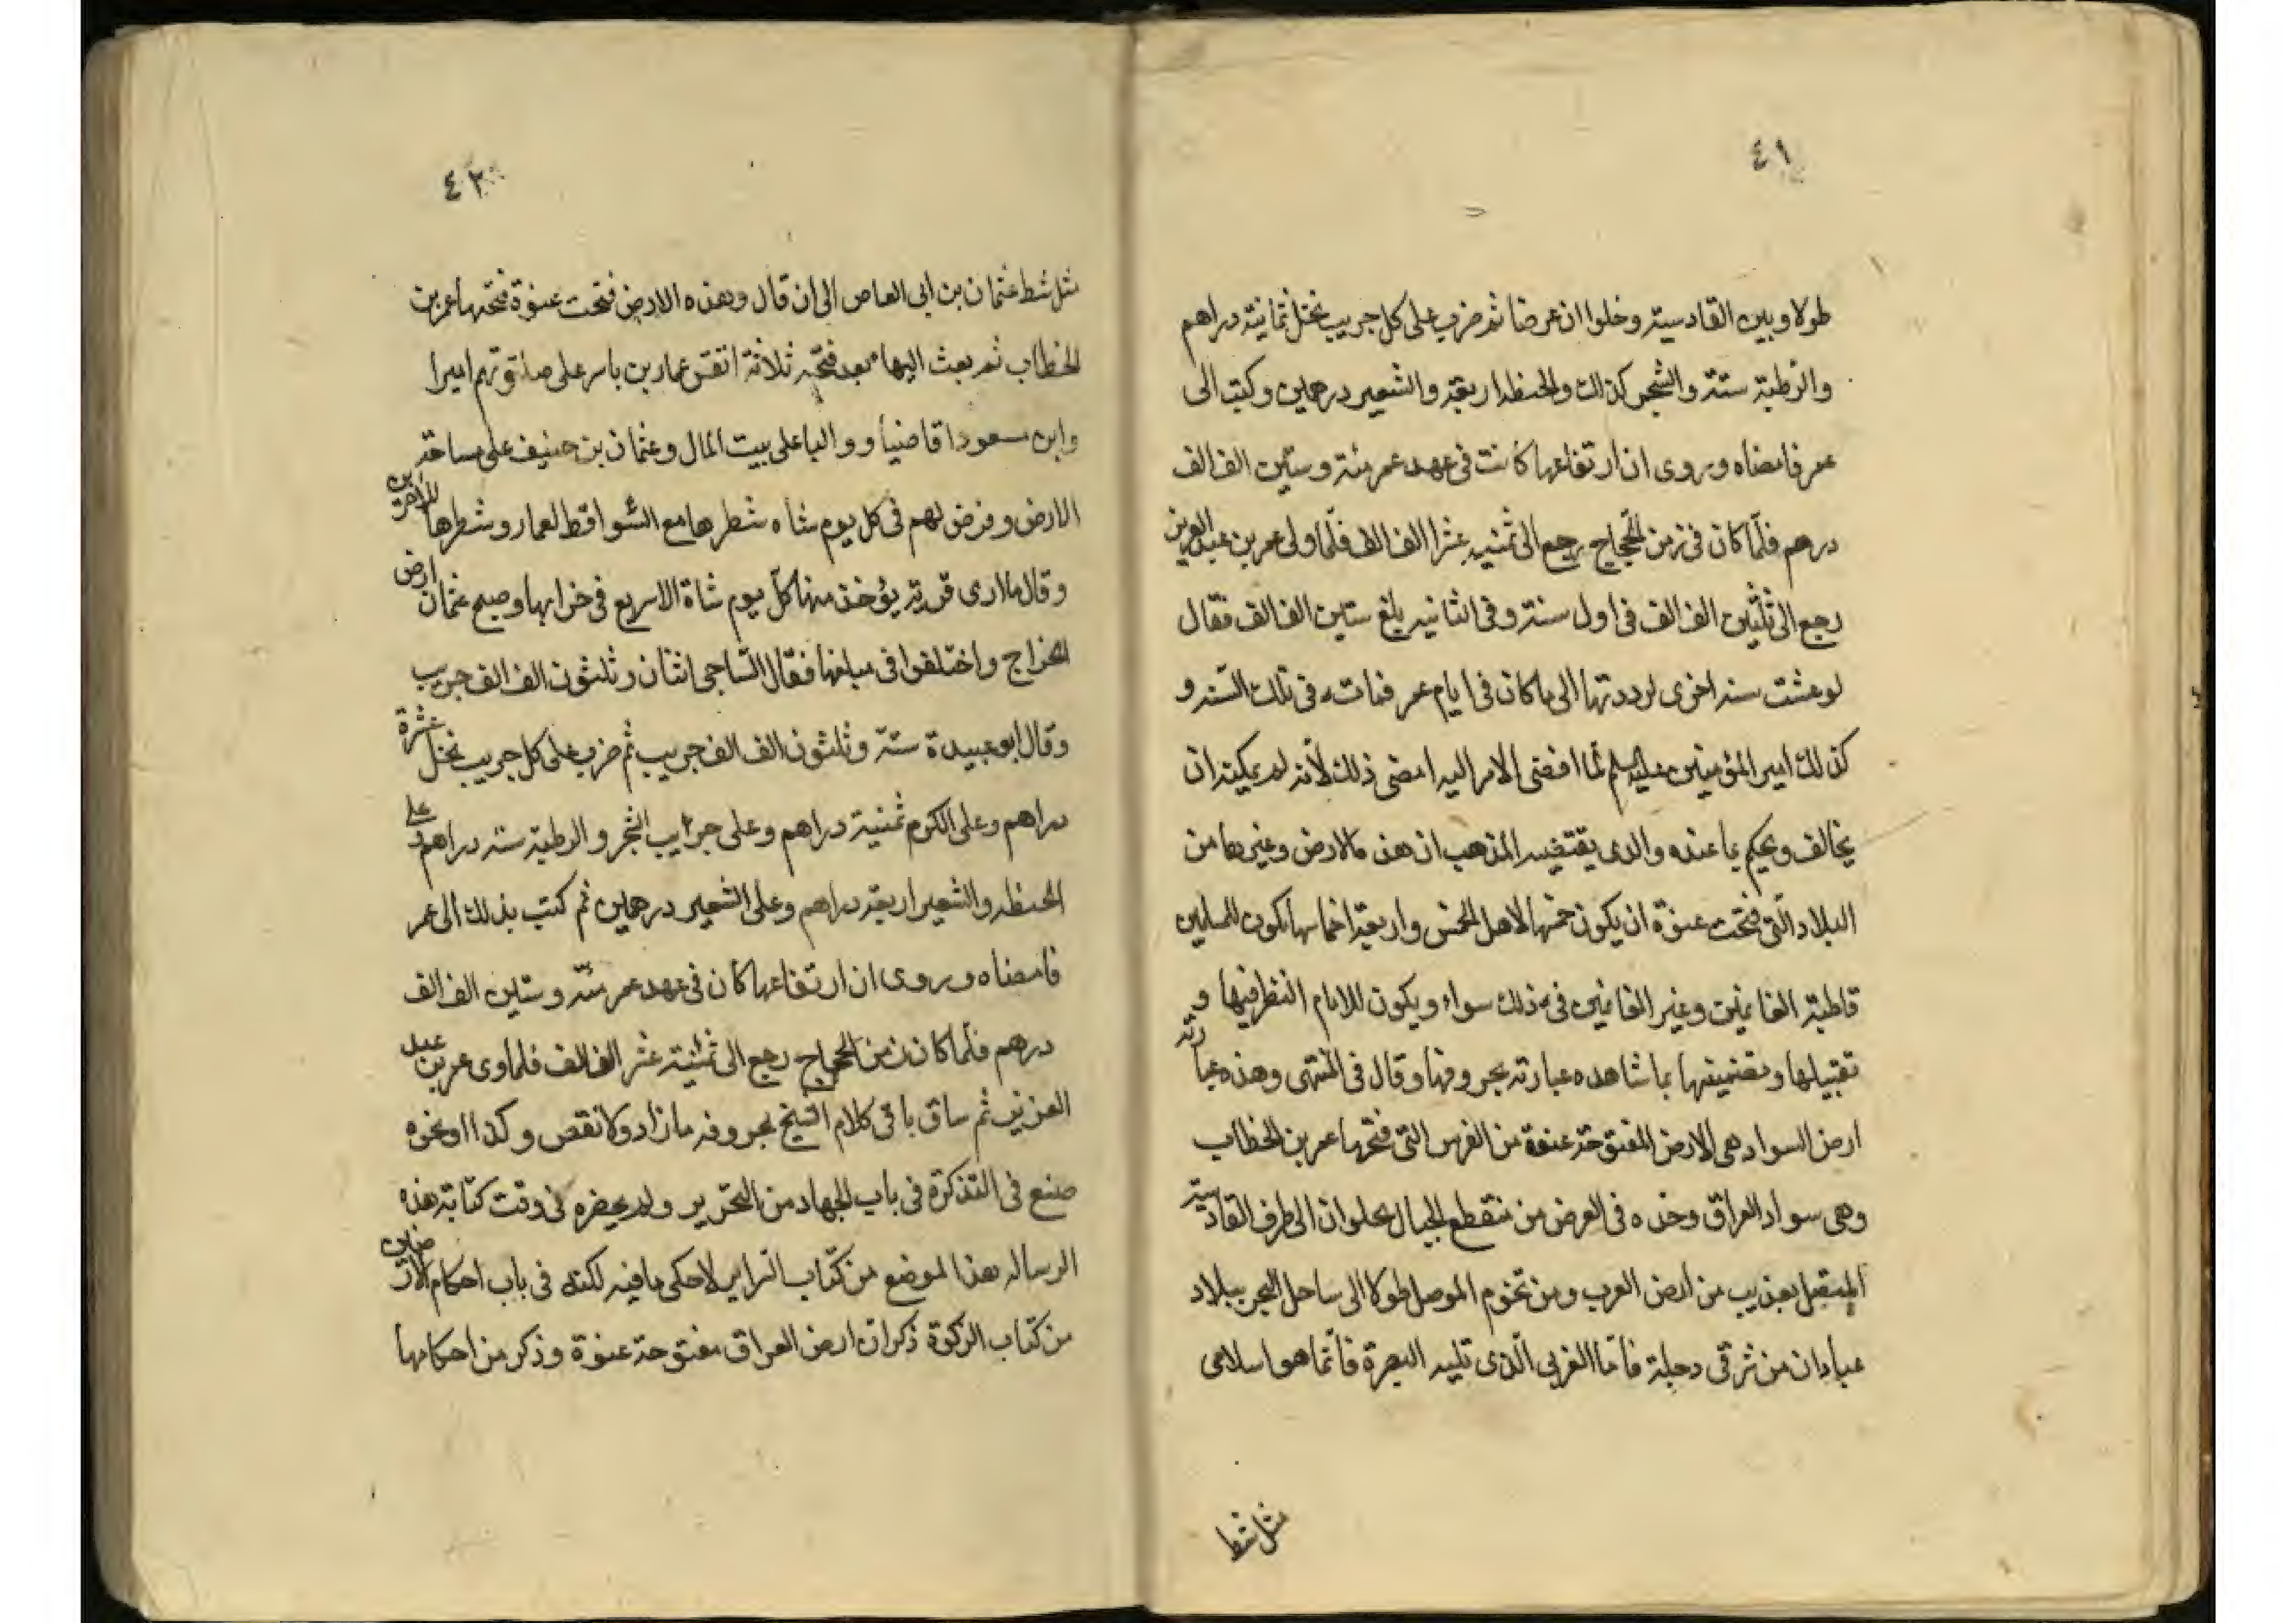 ٤١
طولا وبين القادسية وحلوان عرضا ثم ضرب على كل جريب نخل ثمانية دراهم
والرطبة ستة والشجر كذلك والحنطة اربعة والشعير درهمين وكتب الى
عمر فامضاه وروى ان ارتفاعها كانت فى عهد عمر مئة وستين الف الف
درهم فلما كان فى زمن الحجاج رجع الى ثمنية عشر الف الف فلما ولى عمر بن عبد العزيز
رجع الى ثلثين الف الف فى اول سنة وفى الثانية بلغ ستين الف الف فقال
لو عشت سنة اخرى لرددتها الى ما كان فى ايام عمر فمات فى تلك السنة و
كذلك امير المؤمنين عليه السلم لما افضى الامر اليه امضى ذلك لأنه لم يمكنه ان
يخالف ويحكم بما عنده والذى يقتضيه المذهب ان هذه الارض وغيرها من
البلاد التى فتحت عنوة ان يكون خمسها لاهل الخمس واربعة اخماسها يكون للمسلمين
قاطبة الغانمين وغير الغانمين فى ذلك سواء ويكون للامام النظر فيها و
تقبيلها وتضمينها بما شاء هذه عبارته بحروفها وقال فى المنتهى وهذه عبارته
ارض السواد هى الارض المفتوحة عنوة من الفرس التى فتحها عمر بن الخطاب
وهى سواد العراق وحده فى العرض من منقطع الجبال بحلوان الى طرف القادسية
المتصل بعذيب من ارض العرب ومن تخوم الموصل طولا الى ساحل البحر ببلاد
عبادان من شرقى دجلة فأما الغربى الذى تليه البصرة فأنما هو اسلامى
مثل شط
٤٢
مثل شط عثمان بن ابى العاص الى ان قال وهذه الارض فتحت عنوة فتحها عمر بن
الخطاب ثم بعث اليها بعد فتحه ثلاثة انفس عمار بن ياسر على صلوتهم اميرا
وابن مسعود قاضيا ووالياً على بيت المال وعثمان بن حنيف على مساحة
الارض وفرض لهم فى كل يوم شاة شطرها مع السواقط لعمار وشطرها للاخرين
وقال ما ارى قرية يؤخذ منها كل يوم شاة الا سريع فى خرابها ومسح عثمان ارض
الخراج واختلفوا فى مبلغها فقال الساجى اثنان وثلثون الف الف جريب
وقال ابو عبيدة ستة وثلثون الف الف جريب ثم ضرب على كل جريب نخل عشرة
دراهم وعلى الكرم ثمنية دراهم وعلى جرايب الشجر والرطبة ستة دراهم وعلى
الحنطة والشعير اربعة دراهم وعلى الشعير درهمين ثم كتب بذلك الى عمر
فامضاه وروى ان ارتفاعها كان فى عهد عمر مئة وستين الف الف
درهم فلما كان زمن الحجاج رجع الى ثمنية عشر الف الف فلما ولى عمر بن عبد
العزيز ثم ساق باقى كلام الشيخ بحروفه ما زاد ولا نقص وكذا او نحوه
صنع فى التذكرة فى باب الجهاد من التحرير ولم يحضره فى وقت كتابة هذه
الرسالة هذا الموضع من كتاب السراير لاحكى ما فيه لكنه فى باب احكام الارضين
من كتاب الزكوة ذكر ان ارض العراق مفتوحة عنوة وذكر من احكامها